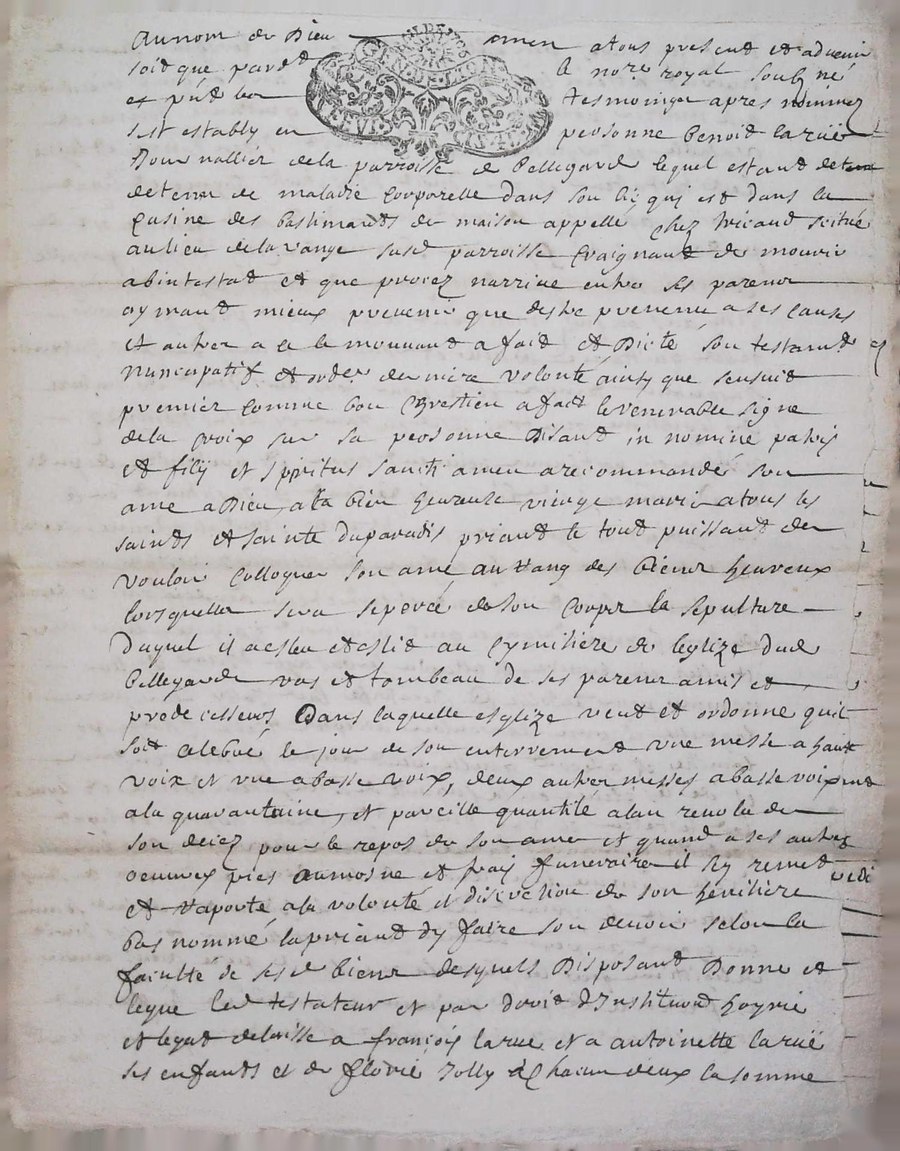 Au nom de Dieu amen a tous present et advenir
soit que pardt le nore royal soubzné
et pnt les tesmoings apres nommez
sest estably en personne Benoit Larüe
Journallier de la parroisse de Bellegarde lequel estant
detenu de maladie corporelle dans son lit qui est dans la
cusine des bastimants de maison appellé chez situé
au lieu de la susd parroisse Craignant de mourir
abintestat et que procez narrive entre ses parens
aymant mieux prevenir que destre prevenu a ses causes
et autres a ce le mouvand a fait et Dicté son testamt
Nuncupatif et ordre derniere volonté ainsy que sensuit
premier comme bon Chrestien a fait le venerable signe
de la croix sur sa personne Disant in nomine patris
et filij et spiritus sancti amen a recommandé son
ame a Dieu, a la bien heureuse vierge marie a tous les
saints et sainte du paradis priant le tout puissant de
vouloir colloquer son ame au rang des biens heureux
lorsquelle sera seperée de son corps la sepulture
Duquel il a esleu et eslit au cymitiere de leglize dud
Bellegarde vas et tombeau de ses parens amis et
predecesseurs Dans laquelle esglize veut et ordonne quil
soit celebré le jour de son enterrement vne messe a haute
voix et vne a basse voix, deux autres messes a basse voix
a la quarantaine, et pareille quantité a lan revolu de
son decez pour le repos de son ame et quand a ses autres
oeuvres pies aumosne et frais funeraire il sen remet
et raporte a la volonté et discretion de son héritiere
bas nommé la priant dy faire son devoir selon la
faculté de sesd biens desquels Disposant Donne et
legue led testateur et par droit dInstitution hoyrie
et legat delaisse a françois larue et a antoinette larüe
ses enfants et de florie Jolly a chacun deux la somme